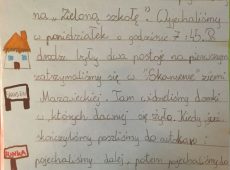 na „Zieloną szkołę”. Wyjechaliśmy
w poniedziałek o godzinie 7:45. B
drodze były dwa postoje na pierwszym
zatrzymaliśmy się w "Skansenie" ziemi
Mazowieckiej. Tam widzieliśmy domki
w których dawniej się żyło. Kiedy już
skończyliśmy poszliśmy do autokaru i
pojechaliśmy dalej, potem pojechaliśmy do